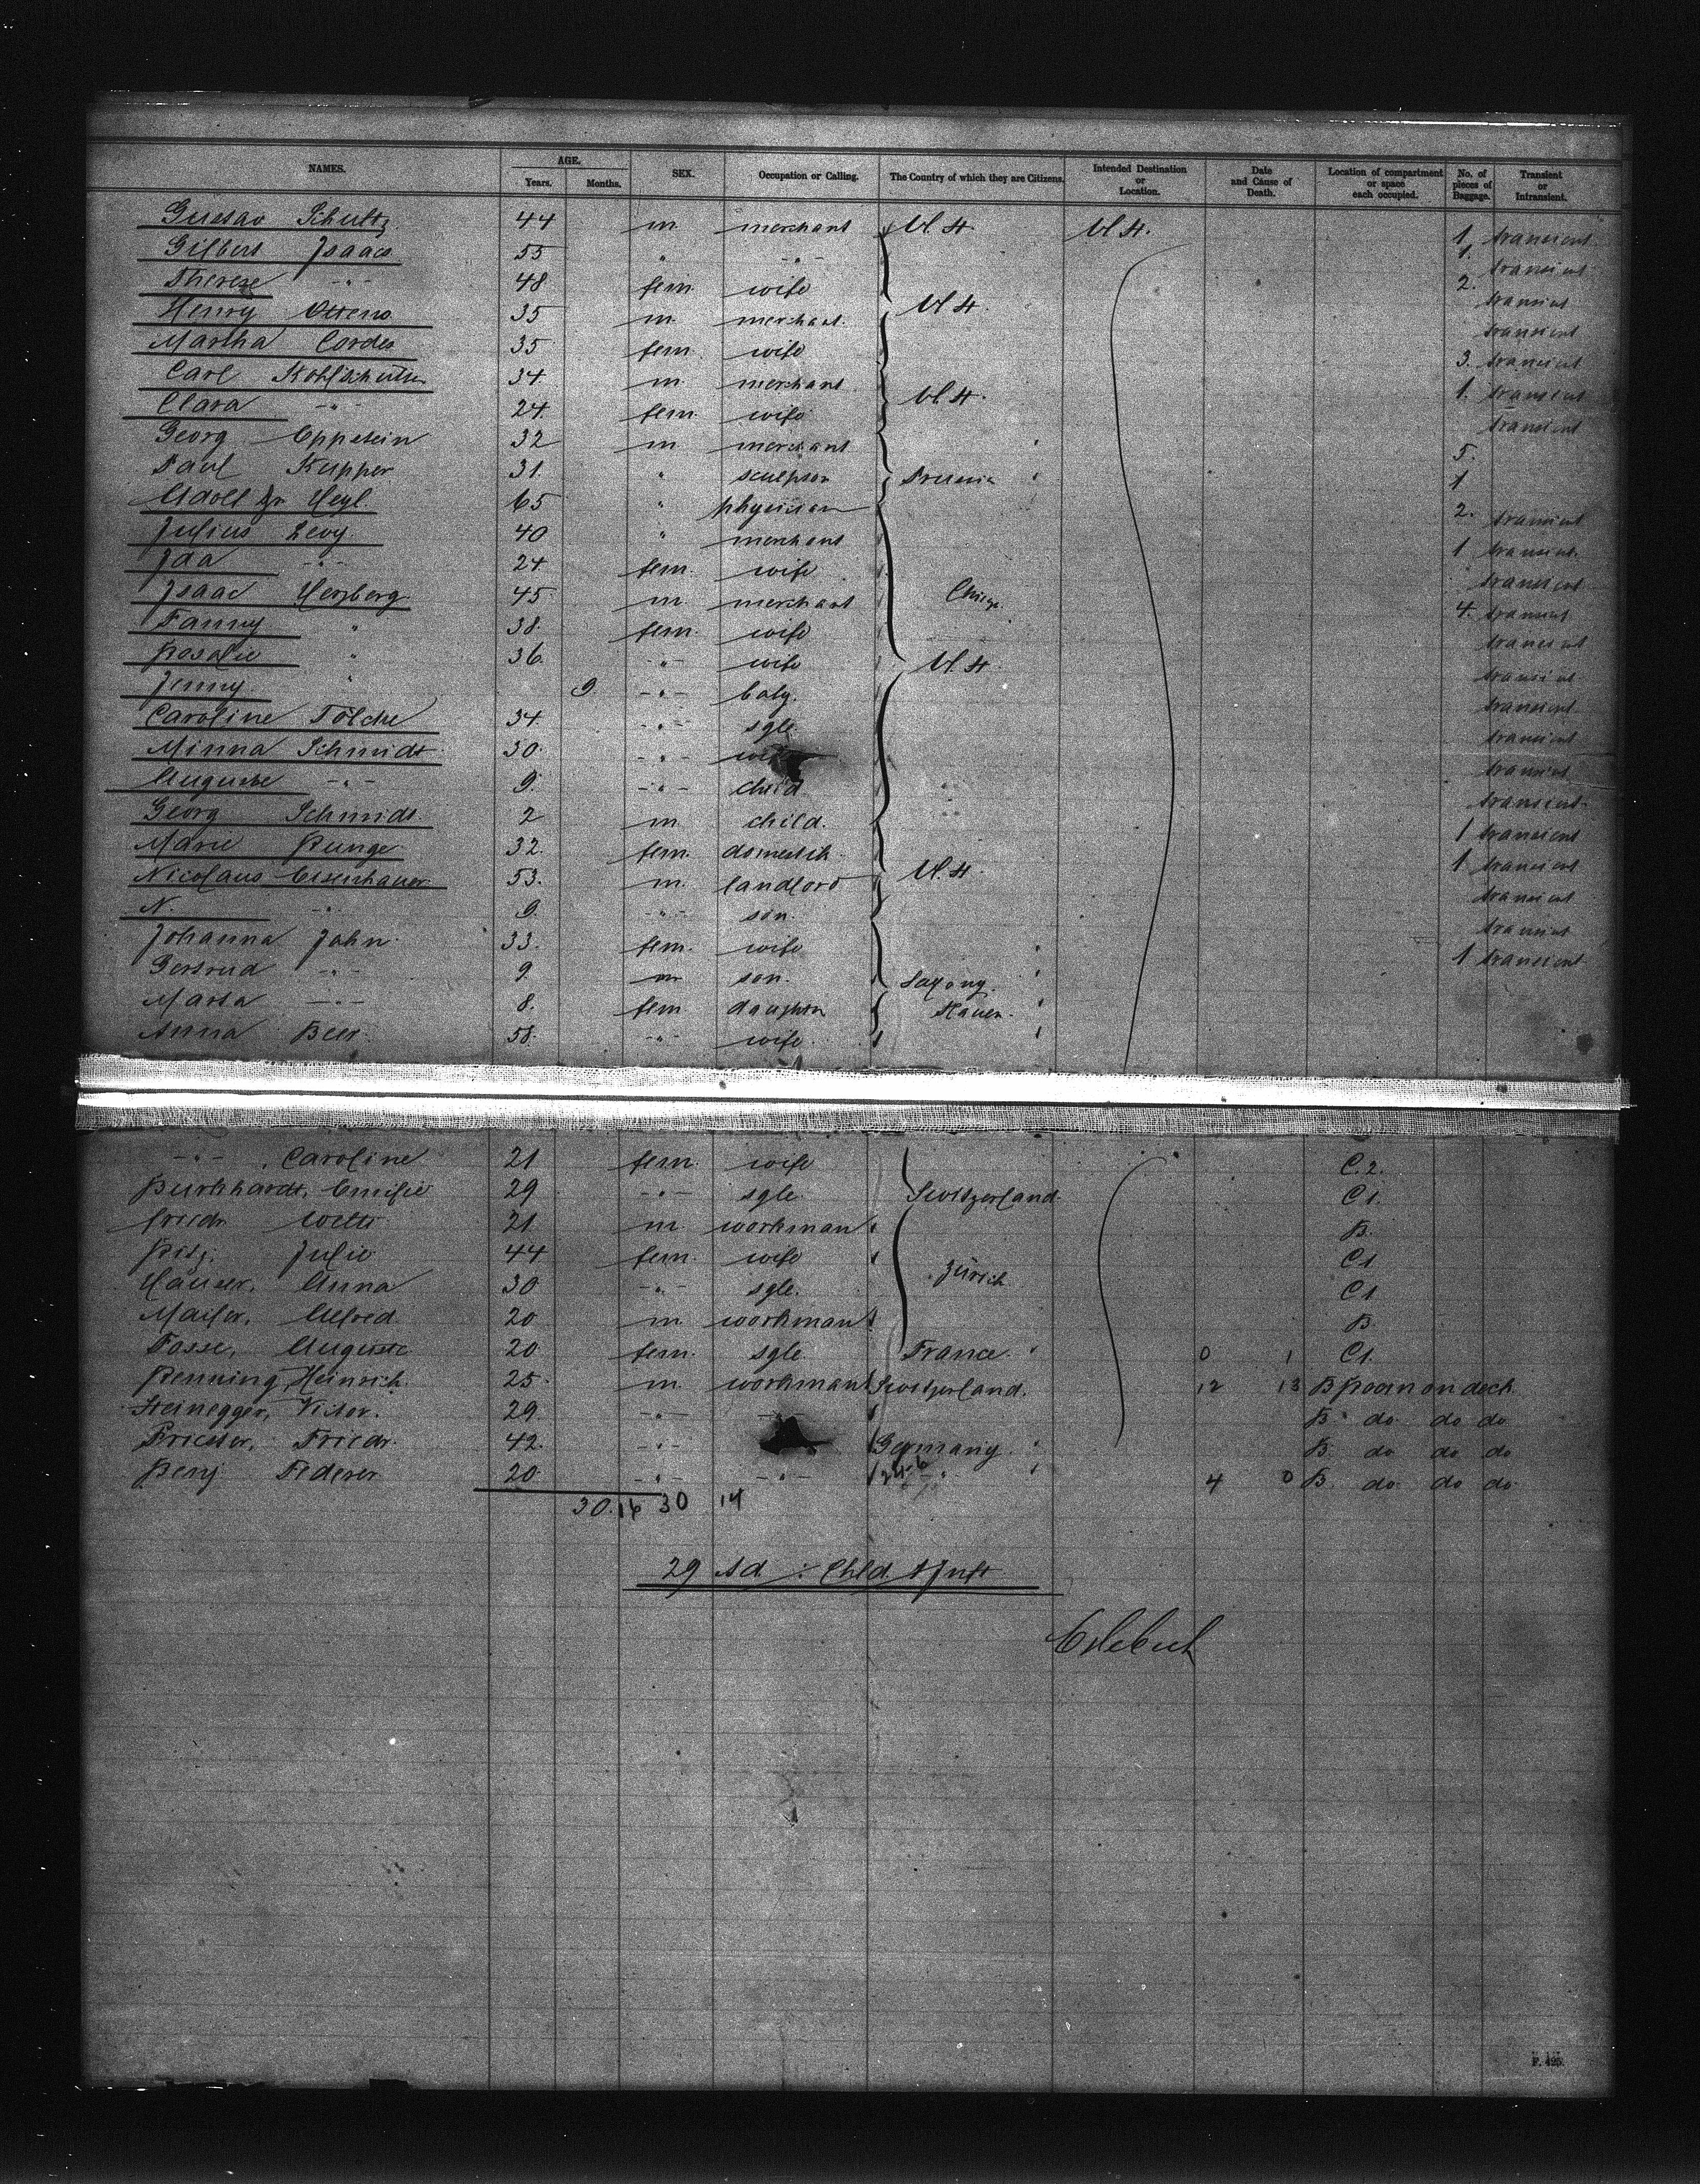 NAMES. AGE. Years. Months. SEX. Occupation or Calling. The Country of which they are Citizens. Intended Destination or Location. Date and Cause of Death. Location of compartment or space each occupied. No. of pieces of Baggage. Transient or Intransient.
Gustav Schultz 44 m merchant U. St. U. St. 1 transient
Gilbert Isaacs 55 " -"- 1. transient
Therese -"- 48 fem. wife 2. transient
Henry 35 m. merchant. U. St. transient
Martha Cordes 35 fem. wife 3. transient
Carl 34 m. merchant 1. transient
Clara -"- 24. fem. wife U. St. transient
Georg Eppstein 32 m merchant 5.
Paul Kupper 31. " sculptor Prussia 1
Adolf 65 " physician 2. transient
Julius Levy. 40 " merchant 1 transient
Ida -"- 24 fem. wife transient
Isaac Herzberg 45 m. merchant 4. transient
Fanny " 38 fem. wife transient
Rosalie " 36. -"- wife U. St. transient
Jenny " 9 -"- baby. transient
Caroline Tölcke 34. -"- sgle transient
Minna Schmidt 30. -"- transient
Auguste -"- 9. -"- child transient
Georg Schmidt. 2 m child. 1 transient
Marie Runge 32. fem. domestik 1 transient
Nicolaus Eisenhauer 53. m. landlord U. St. transient
N. -"- 9. -"- son. transient
Johanna Jahn 33. fem. wife 1 transient
Gertrud -"- 9. m son. Saxony.
Marta -"- 8. fem
Anna Beer. 58. -"- wife
-"- Caroline 21 fem. wife C. 2.
Burkhardt, Emilie 29 -"- sgle. Switzerland C 1.
21 m workman B.
Julie 44 fem. wife C 1
Hauser, Anna 30 -"- sgle. Zürich C 1
Alfred 20 m. workman B.
Fasse, Auguste 20 fem. sgle. France. 0 1 C 1.
Benning, Heinrich. 25 m. workman Switzerland. 12 13 B Room on deck
Steinegger, Victor. 29 -"- B do do do
Priester, Friedr. 42. -"- Germany. B. do do do
Federer 20 -"- -"- -"- 4 0 B. do do do
30. 16 30 14
29 Ad
F. 425.